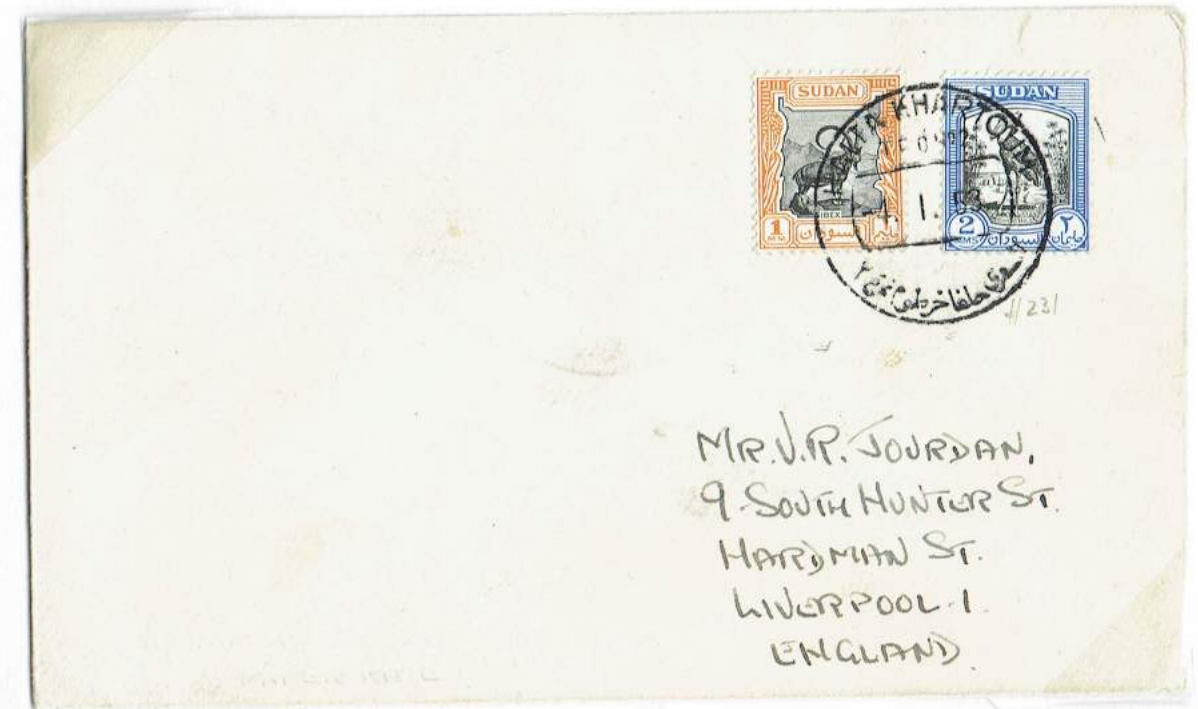 SUDAN
IBEX
1 MM السودان مليم
SUDAN
2 MMS السودان مليمان ٢
HALFA KHARTOUM
4. 1. 53
حلفا خرطوم
231
MR. V.R. JOURDAN,
9 SOUTH HUNTER ST.
HARDMAN ST.
LIVERPOOL-1.
ENGLAND.